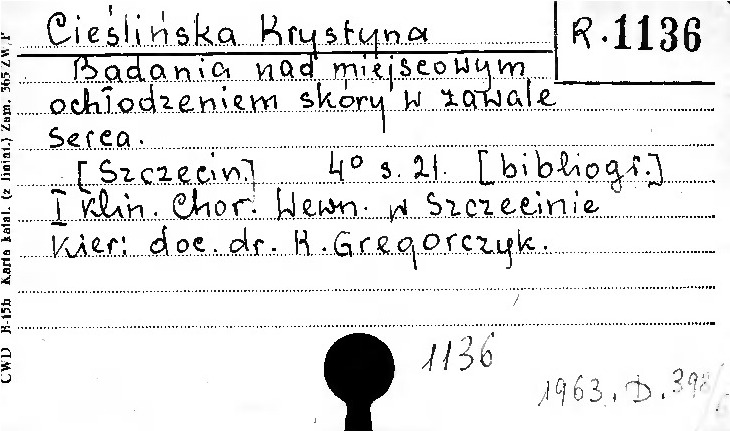 Cieślińska Krystyna
R.1136
Badania nad miejscowym
ochłodzeniem skóry w zawale
serca.
[Szczecin.] 4° s. 21. [bibliogr.]
I Klin. Chor. Wewn. w Szczecinie
Kier: doc. dr. K. Gregorczyk.
1136
1963. D. 398/
CWD B-15b Karta katal. (z liniat.) Zam. 365 ZW.P